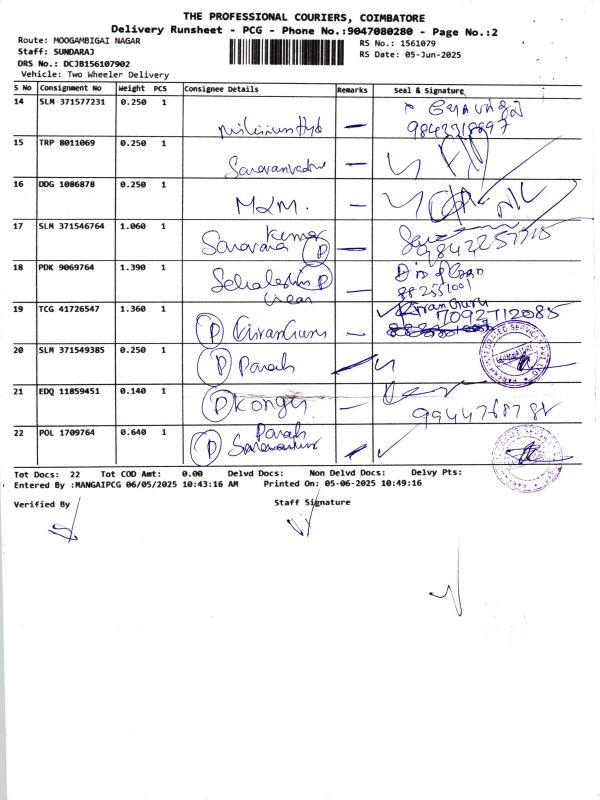 THE PROFESSIONAL COURIERS, COIMBATORE
Delivery Runsheet - PCG - Phone No.:9047080280 - Page No.:2
Route: MOOGAMBIGAI NAGAR
RS No.: 1561079
Staff: SUNDARAJ
RS Date: 05-Jun-2025
DRS No.: DCJB156107902
Vehicle: Two Wheeler Delivery
S No Consignment No Weight PCS Consignee Details Remarks Seal & Signature
14 SLM 371577231 0.250 1
15 TRP 8011069 0.250 1
16 DDG 1086878 0.250 1 MKM.
17 SLM 371546764 1.060 1 Saravana Kumar (P)
18 PDK 9069764 1.390 1 (P)
19 TCG 41726547 1.360 1 (P) KiranGuru KiranGuru 7092712085
20 SLM 371549385 0.250 1 (P) Parak
21 EDQ 11859451 0.140 1 (P) Kongu
22 POL 1709764 0.640 1 (P) Parak
Tot Docs: 22 Tot COD Amt: 0.00 Delvd Docs: Non Delvd Docs: Delvy Pts:
Entered By :MANGAIPCG 06/05/2025 10:43:16 AM Printed On: 05-06-2025 10:49:16
Verified By Staff Signature